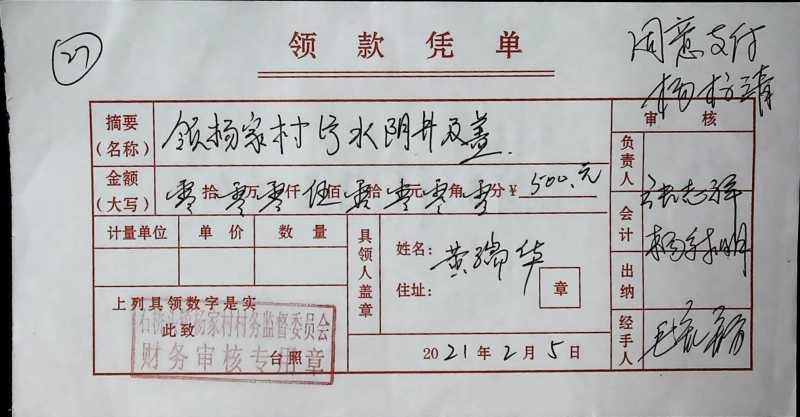 27
领款凭单
同意支付
摘要
(名称)
领杨家村污水阴井及盖
审核
金额
(大写)
零拾零万零仟伍佰零拾零元零角零分¥500.元
负责人
计量单位 单价 数量
具领人盖章
姓名:黄瑞华
住址:
章
会计
出纳
经手人
上列具领数字是实
此致
台照
杨家村村务监督委员会
财务审核专用章
2021年2月5日